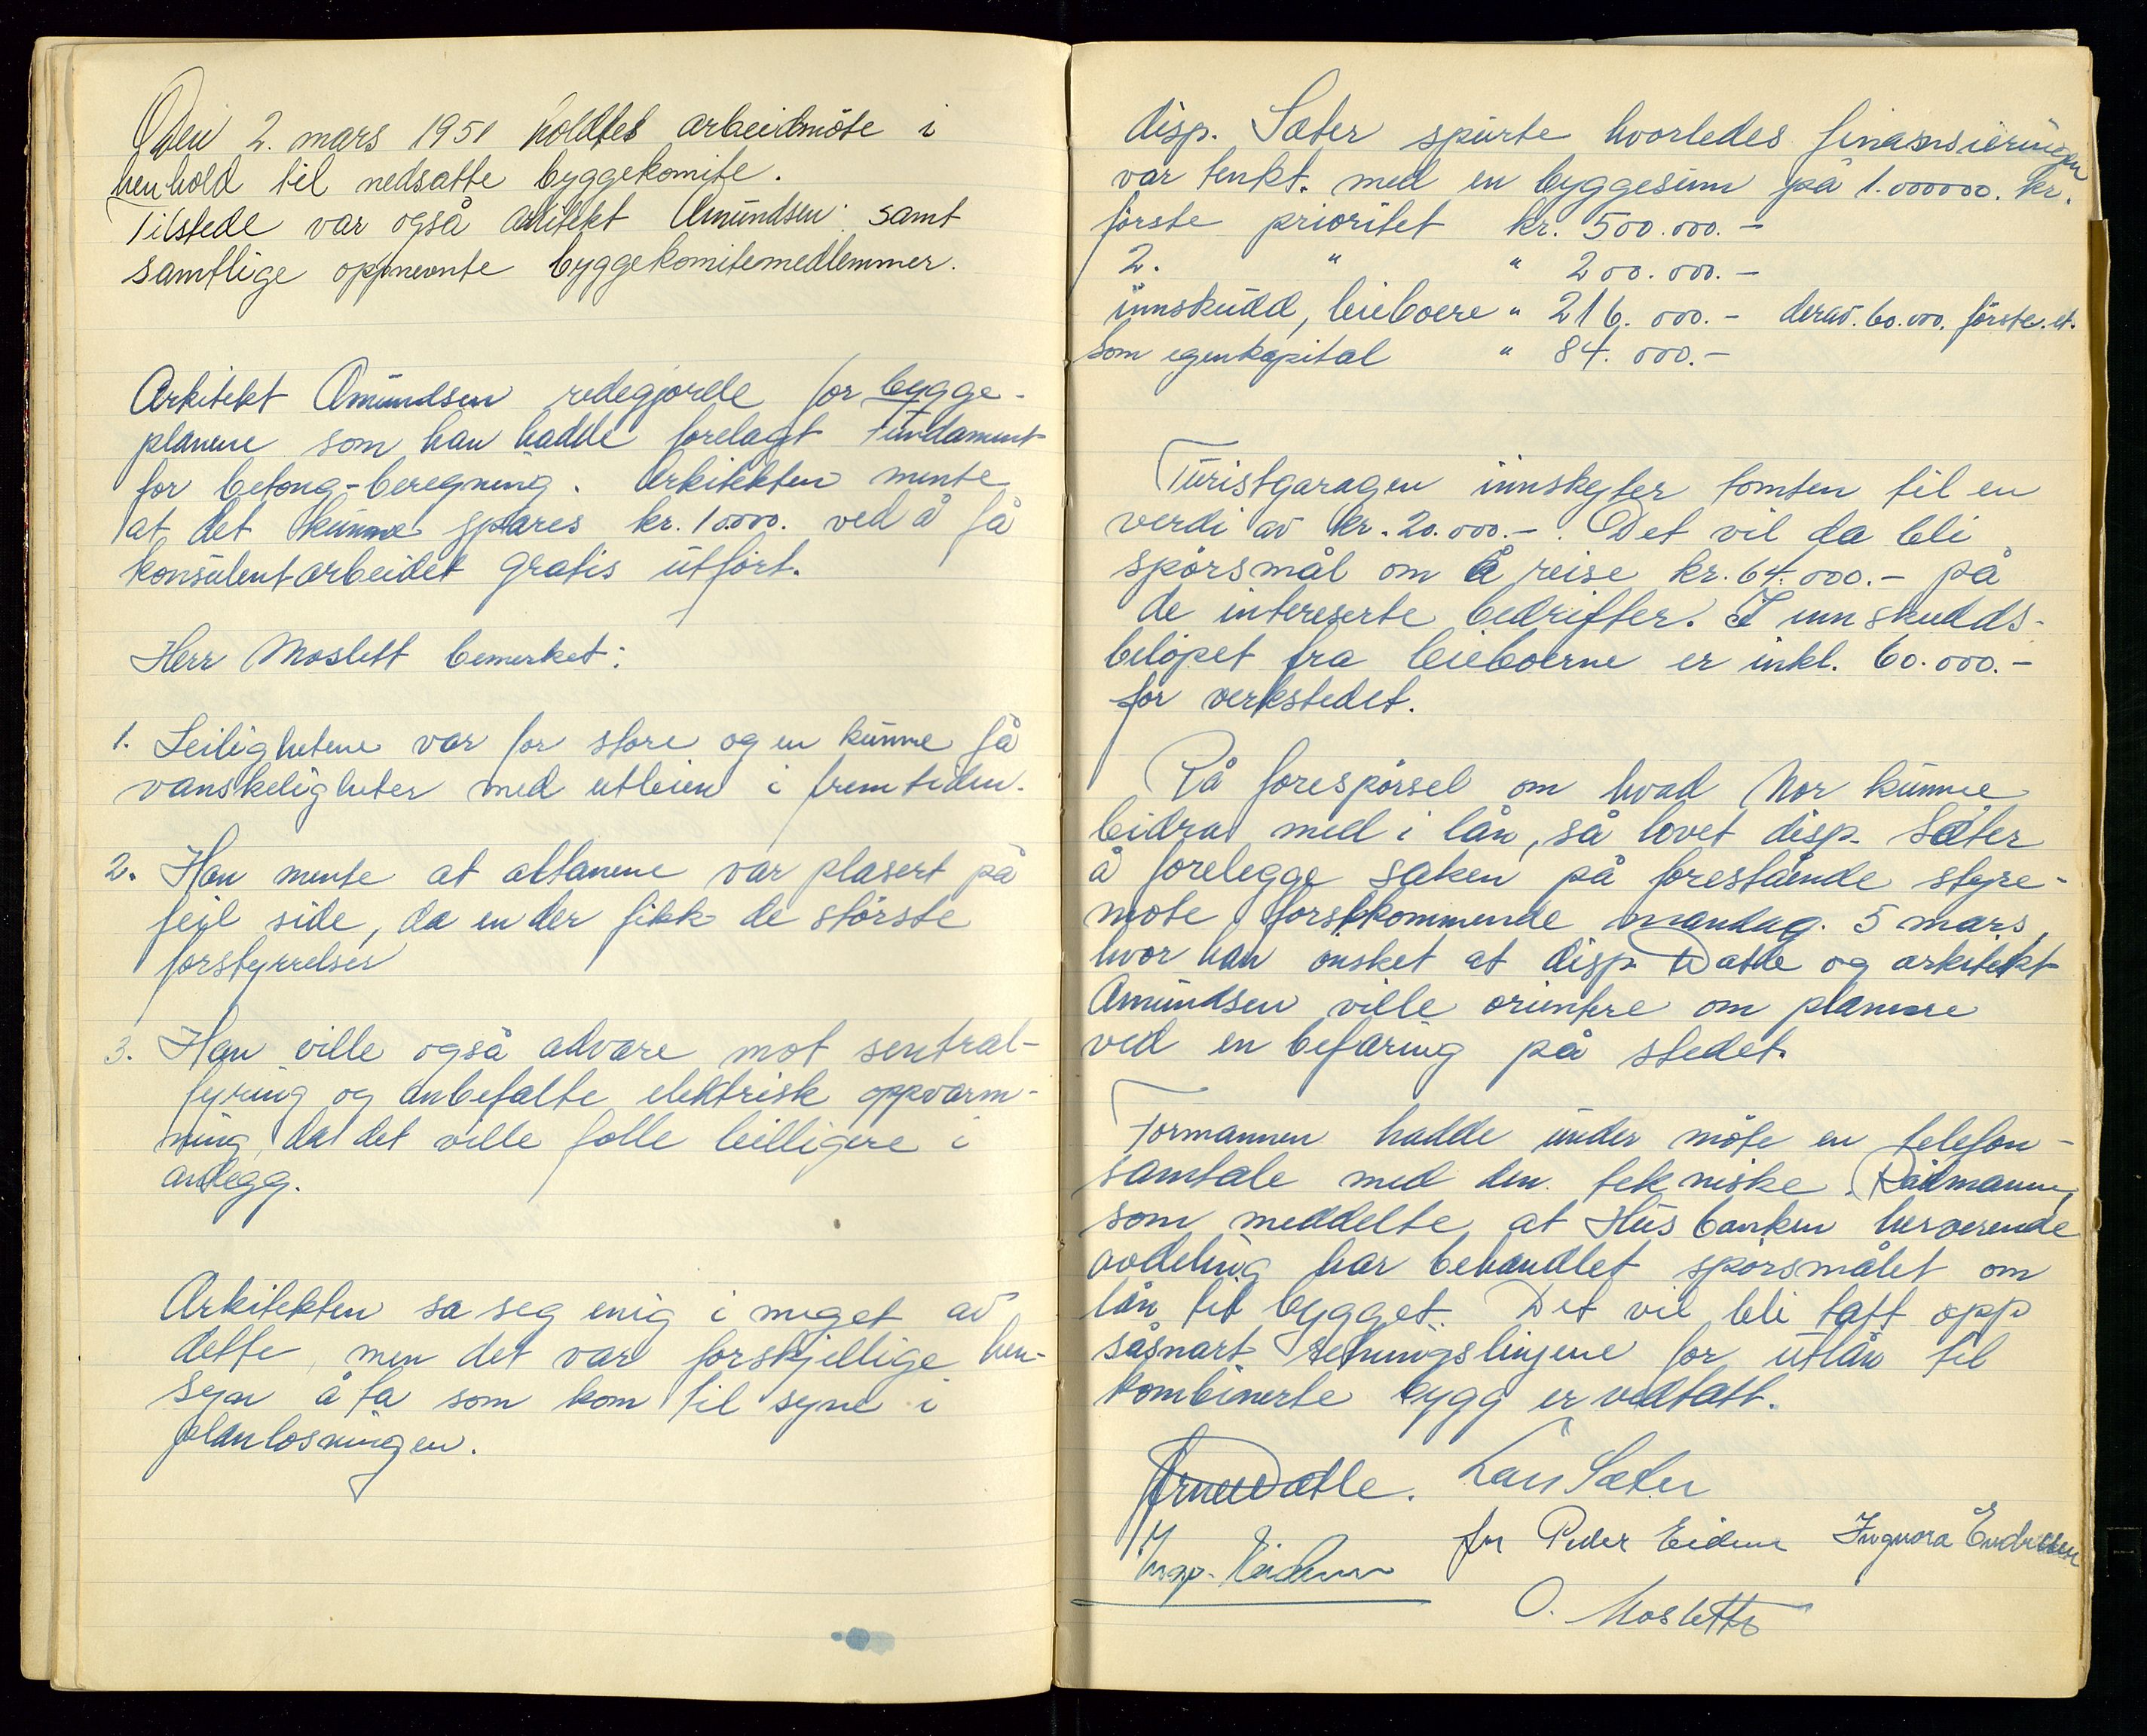 Den 2. mars 1951 holdtes arbeidmöte i
henhold til nedsatte byggekomite.
Tilstede var også arkitekt Amundsen samt
samtlige oppnevnte byggekomitemedlemmer.
Arkitekt Amundsen redegjorde for bygge-
planene som han hadde forelagt Fundament
for betong-beregning. Arkitekten mente
at det kunne spares kr. 10.000. ved å få
konsulentarbeidet gratis utfört.
Herr Moslett bemerket:
1. Leilighetene var for store og en kunne få
vanskeligheter med utleien i fremtiden.
2. Han mente at altanene var plasert på
feil side, da en der fikk de störste
forstyrrelser
3. Han ville også advare mot sentral-
fyring og anbefalte elektrisk oppvarm-
ning, da det ville falle billigere i
anlegg.
Arkitekten sa seg enig i meget av
dette, men det var forskjellige hen-
syn å ta som kom til syne i
planlosningen.
disp. Sæter spurte hvorledes finansieringen
var tenkt. med en byggesum på 1.000000. kr.
förste prioritet kr. 500.000.-
2. " " 200.000.-
innskudd, leieboere " 216.000.- derav. 60.000. förste. et.
som egenkapital " 84.000.-
Turistgaragen innskyter tomten til en
verdi av kr. 20.000.-. Det vil da bli
spörsmål om å reise kr. 64.000.- på
de intereserte bedrifter. I innskudds-
belöpet fra leieboerne er inkl. 60.000.-
for verkstedet.
På forespörsel om hvad Nor kunne
bidra med i lån, så lovet disp. Sæter
å forelegge saken på forestående styre-
mote forstkommende mandag. 5 mars,
hvor han onsket at disp. Datle og arkitekt
Amundsen ville orientere om planene
ved en befaring på stedet.
Formannen hadde under möte en telefon-
samtale med den tekniske Rådmann,
som meddelte at Husbanken herverende
avdeling har behandlet sporsmålet om
lån til bygget. Det vil bli tatt opp
såsnart retningslinjene for utlån til
kombinerte bygg er vedtatt.
Arne Datle. Lars Sæter
for Peder Eidem Ingvora Endresen
O. Moslett